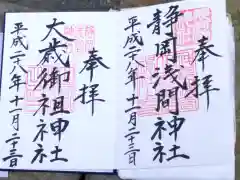 奉拝
静岡浅間神社
平成二十八年十一月二十三日
奉拝
大歳御祖神社
平成二十八年十一月二十三日